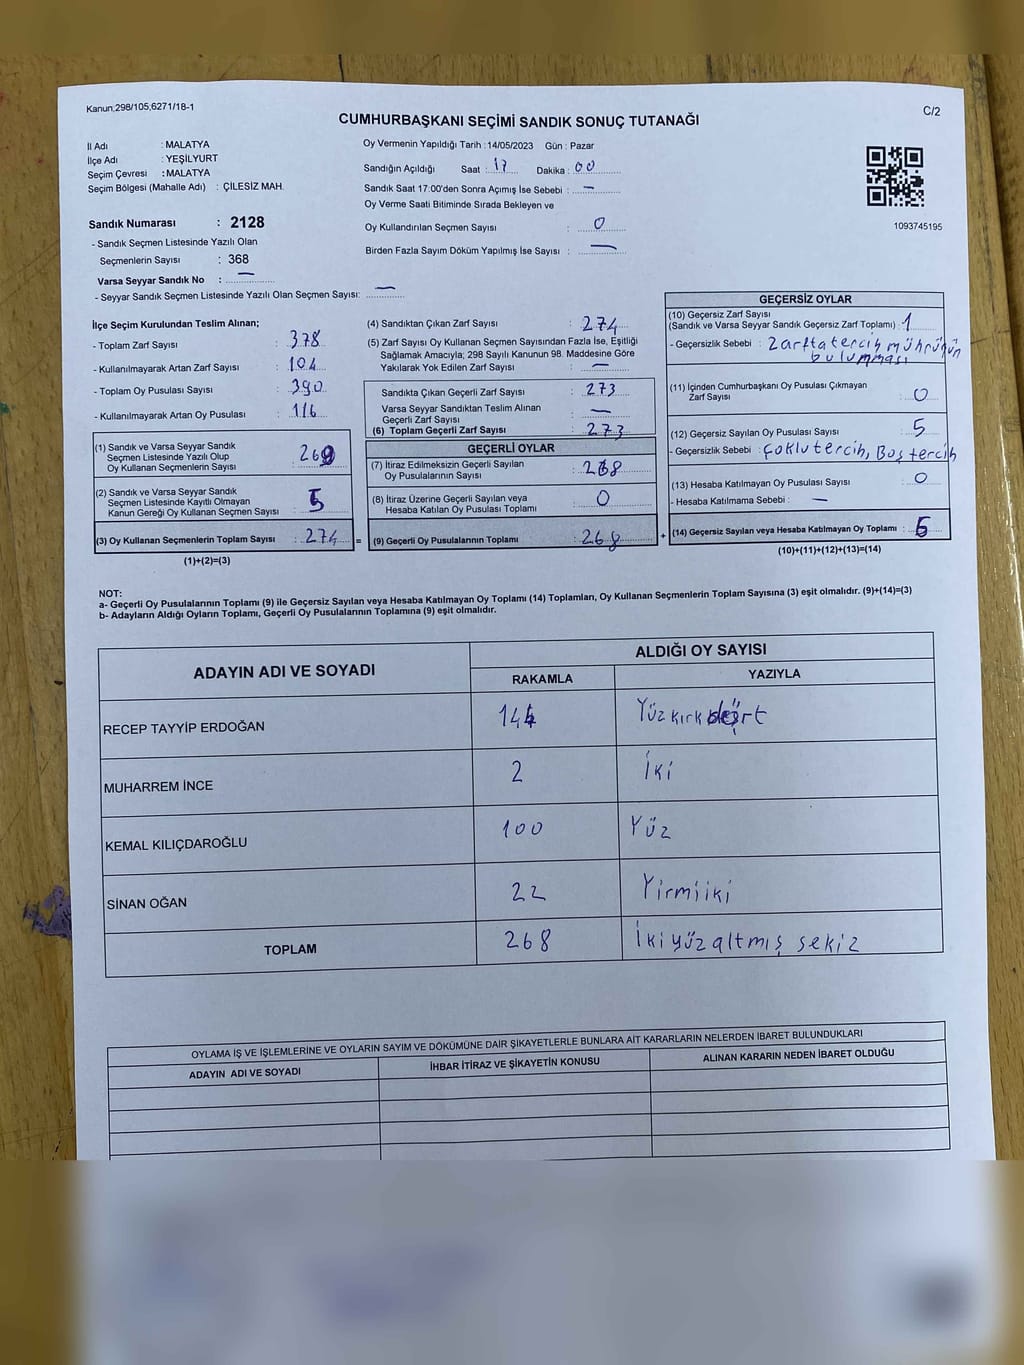 Kanun,298/105,6271/18-1
C/2
CUMHURBAŞKANI SEÇİMİ SANDIK SONUÇ TUTANAĞI
İl Adı : MALATYA
İlçe Adı : YEŞİLYURT
Seçim Çevresi : MALATYA
Seçim Bölgesi (Mahalle Adı) : ÇİLESİZ MAH.
Sandık Numarası : 2128
- Sandık Seçmen Listesinde Yazılı Olan
Seçmenlerin Sayısı : 368
Varsa Seyyar Sandık No : —
- Seyyar Sandık Seçmen Listesinde Yazılı Olan Seçmen Sayısı: —
Oy Vermenin Yapıldığı Tarih : 14/05/2023 Gün : Pazar
Sandığın Açıldığı Saat : 17 Dakika : 00
Sandık Saat 17:00'den Sonra Açımış İse Sebebi : —
Oy Verme Saati Bitiminde Sırada Bekleyen ve
Oy Kullandırılan Seçmen Sayısı : 0
Birden Fazla Sayım Döküm Yapılmış İse Sayısı : —
1093745195
İlçe Seçim Kurulundan Teslim Alınan;
- Toplam Zarf Sayısı : 378
- Kullanılmayarak Artan Zarf Sayısı : 104
- Toplam Oy Pusulası Sayısı : 390
- Kullanılmayarak Artan Oy Pusulası : 116
(1) Sandık ve Varsa Seyyar Sandık
Seçmen Listesinde Yazılı Olup
Oy Kullanan Seçmenlerin Sayısı : 269
(2) Sandık ve Varsa Seyyar Sandık
Seçmen Listesinde Kayıtlı Olmayan
Kanun Gereği Oy Kullanan Seçmen Sayısı : 5
(3) Oy Kullanan Seçmenlerin Toplam Sayısı : 274 =
(1)+(2)=(3)
(4) Sandıktan Çıkan Zarf Sayısı : 274
(5) Zarf Sayısı Oy Kullanan Seçmen Sayısından Fazla İse, Eşitliği
Sağlamak Amacıyla; 298 Sayılı Kanunun 98. Maddesine Göre
Yakılarak Yok Edilen Zarf Sayısı : —
Sandıkta Çıkan Geçerli Zarf Sayısı : 273
Varsa Seyyar Sandıktan Teslim Alınan
Geçerli Zarf Sayısı : —
(6) Toplam Geçerli Zarf Sayısı : 273
GEÇERLİ OYLAR
(7) İtiraz Edilmeksizin Geçerli Sayılan
Oy Pusulalarının Sayısı : 268
(8) İtiraz Üzerine Geçerli Sayılan veya
Hesaba Katılan Oy Pusulası Toplamı : 0
(9) Geçerli Oy Pusulalarının Toplamı : 268 +
GEÇERSİZ OYLAR
(10) Geçersiz Zarf Sayısı
(Sandık ve Varsa Seyyar Sandık Geçersiz Zarf Toplamı) : 1
- Geçersizlik Sebebi : Zarfta tercih mührünün
bulunması
(11) İçinden Cumhurbaşkanı Oy Pusulası Çıkmayan
Zarf Sayısı : 0
(12) Geçersiz Sayılan Oy Pusulası Sayısı : 5
- Geçersizlik Sebebi : Çoklu tercih, Boş tercih
(13) Hesaba Katılmayan Oy Pusulası Sayısı : 0
- Hesaba Katılmama Sebebi : —
(14) Geçersiz Sayılan veya Hesaba Katılmayan Oy Toplamı : 6
(10)+(11)+(12)+(13)=(14)
NOT:
a- Geçerli Oy Pusulalarının Toplamı (9) ile Geçersiz Sayılan veya Hesaba Katılmayan Oy Toplamı (14) Toplamları, Oy Kullanan Seçmenlerin Toplam Sayısına (3) eşit olmalıdır. (9)+(14)=(3)
b- Adayların Aldığı Oyların Toplamı, Geçerli Oy Pusulalarının Toplamına (9) eşit olmalıdır.
ADAYIN ADI VE SOYADI ALDIĞI OY SAYISI
RAKAMLA YAZIYLA
RECEP TAYYİP ERDOĞAN 144 Yüz kırk dört
MUHARREM İNCE 2 İki
KEMAL KILIÇDAROĞLU 100 Yüz
SİNAN OĞAN 22 Yirmiiki
TOPLAM 268 İki yüz altmış sekiz
OYLAMA İŞ VE İŞLEMLERİNE VE OYLARIN SAYIM VE DÖKÜMÜNE DAİR ŞİKAYETLERLE BUNLARA AİT KARARLARIN NELERDEN İBARET BULUNDUKLARI
ADAYIN ADI VE SOYADI İHBAR İTİRAZ VE ŞİKAYETİN KONUSU ALINAN KARARIN NEDEN İBARET OLDUĞU